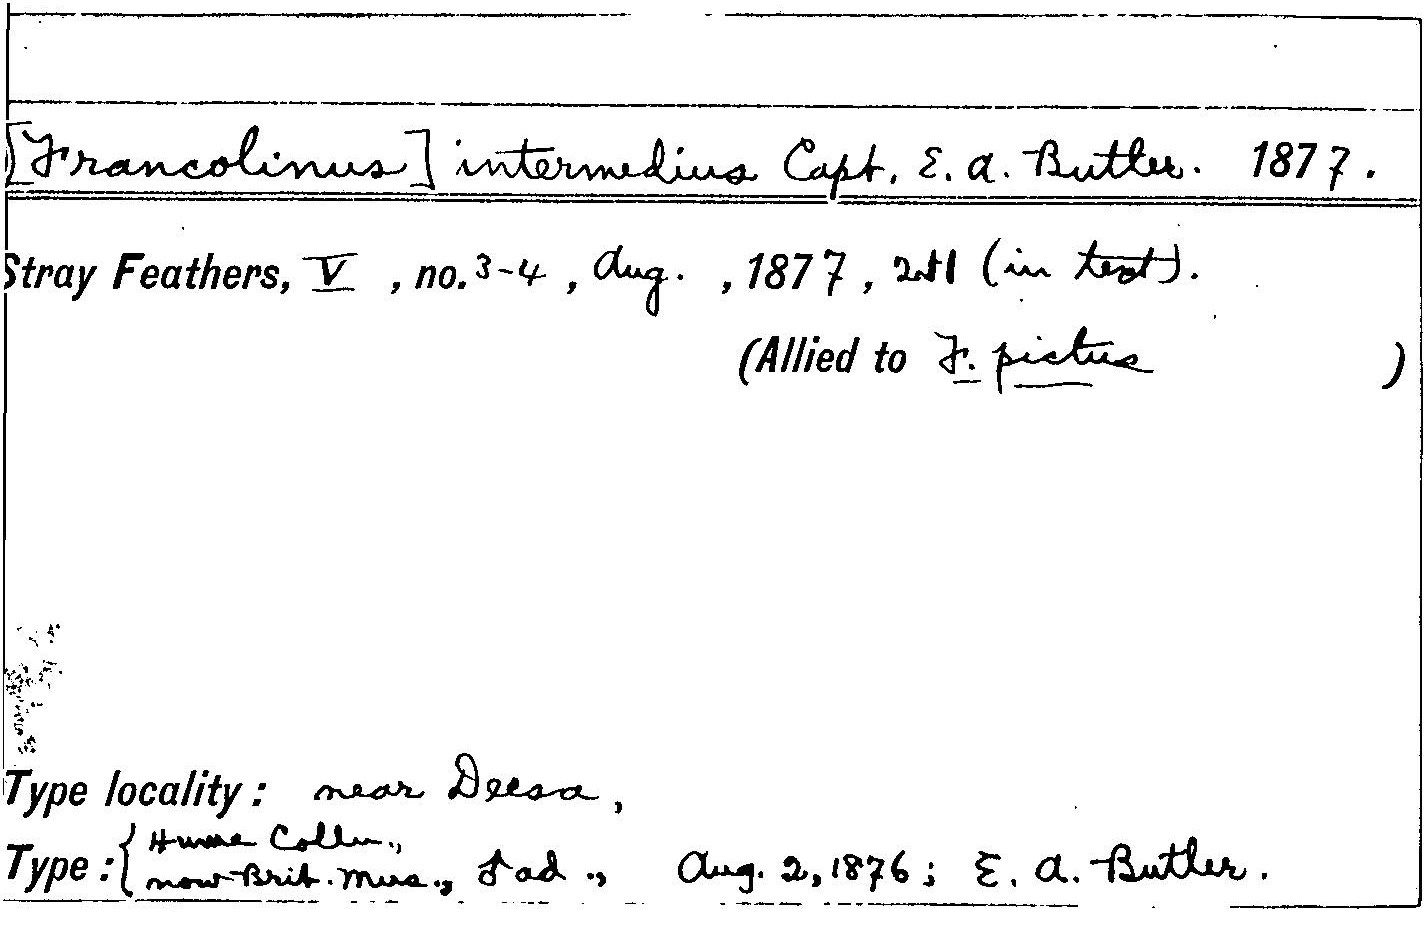 [Francolinus] intermedius Capt. E. A. Butler. 1877.
Stray Feathers, V, no. 3-4, Aug., 1877, 211 (in text).
(Allied to F. pictus)
Type locality: near Deesa,
Type: { Hume Colln.,
now Brit. Mus., ad., Aug. 2, 1876; E. A. Butler.